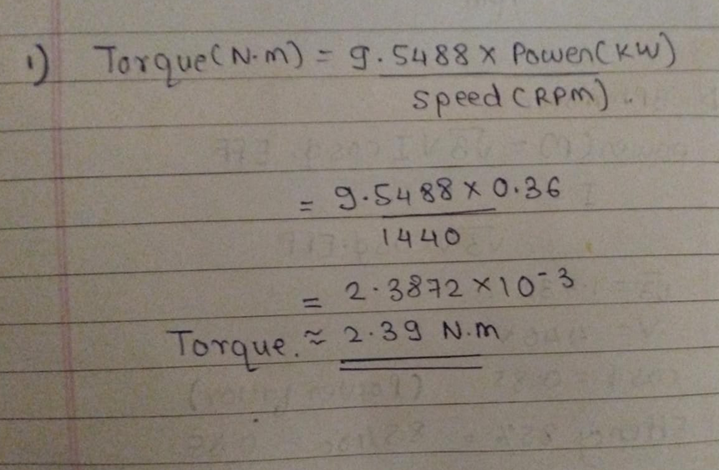 1) Torque (N.m) = 9.5488 x Power (KW)
Speed (RPM)
= 9.5488 x 0.36
1440
= 2.3872 x 10⁻³
Torque. ≈ 2.39 N.m